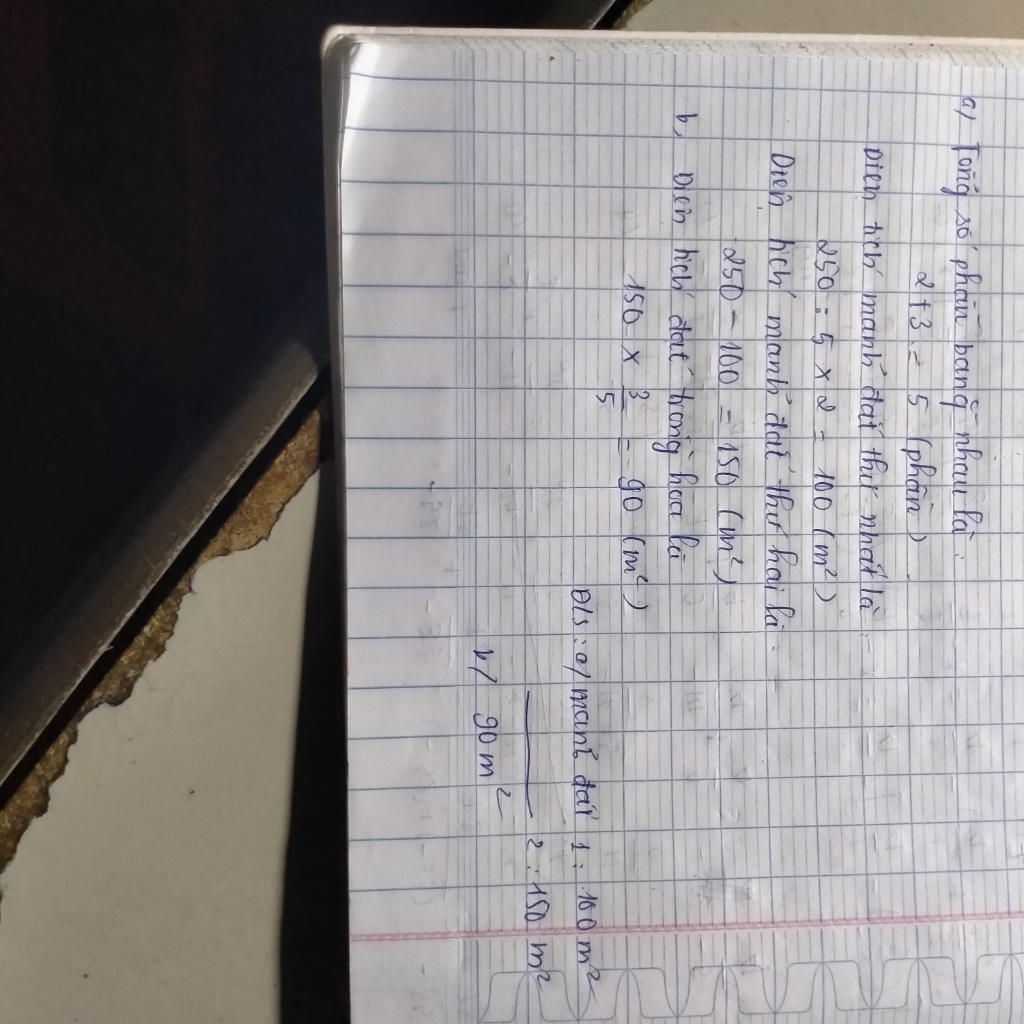 a) Tổng số phần bằng nhau là:
2 + 3 = 5 (phần)
Diện tích mảnh đất thứ nhất là:
250 : 5 x 2 = 100 (m²)
Diện tích mảnh đất thứ hai là:
250 - 100 = 150 (m²)
b, Diện tích đất trồng hoa là
150 x 3/5 = 90 (m²)
Đ/s: a/ mảnh đất 1: 100 m²
——— 2: 150 m²
b/ 90 m²